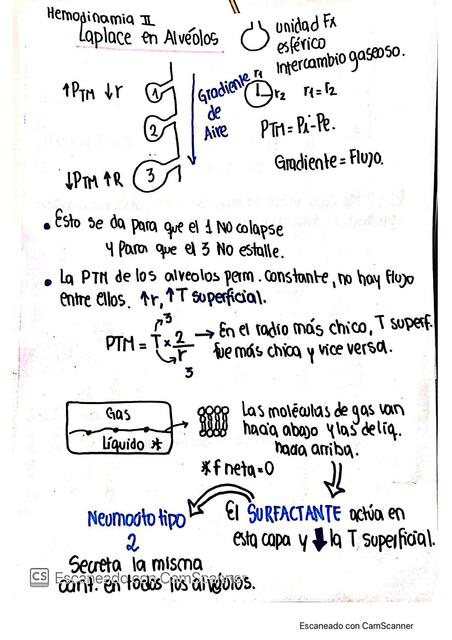 Hemodinamia II
Laplace en Alvéolos
unidad Fx
esférico
Intercambio gaseoso.
↑PTM ↓r
1
2
3
↓PTM ↑R
Gradiente
de
Aire
r1
r2
r1=r2
PTM=Pi-Pe.
Gradiente=Flujo.
• Esto se da para que el 1 NO colapse
y para que el 3 NO estalle.
• La PTM de los alveolos perm. constante, no hay flujo
entre ellos. ↑r, ↑T superficial.
3
PTM = T x 2/r → En el radio más chico, T superf.
fue más chica y vice versa.
3
Gas
Líquido *
Las moléculas de gas van
hacia abajo y las de líq.
hacia arriba.
*f neta=0
El SURFACTANTE actúa en
esta capa y ↓ la T superficial.
Neumocito tipo
2
Secreta la misma
cant. en todos los
CS Escaneado con CamScanner
Escaneado con CamScanner